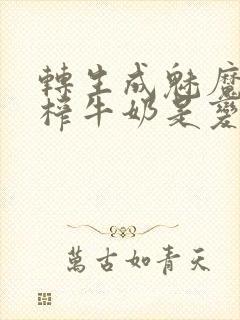 轉生成魅魔
榨牛奶是變
萬古如青天